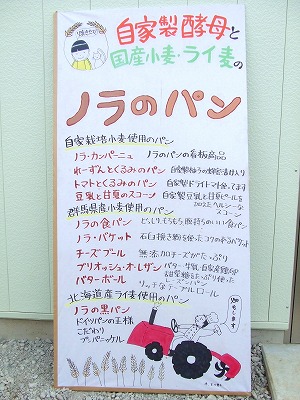 自家製酵母と
国産小麦・ライ麦の
ノラのパン
自家栽培小麦使用のパン
ノラ・カンパーニュ ノラのパンの看板商品
れーずんとくるみのパン
トマトとくるみのパン 自家製ドライトマト使ってます
豆乳と甘夏のスコーン 自家製豆乳と甘夏ピールを
スコーン
群馬県産小麦使用のパン
ノラの食パン どっしりもちもち腹持ちのいい食パン
ノラ・バケット 石臼挽き粉を使ったコクのあるバケット
チーズブール 無添加チーズがたっぷり
ブリオッシュ・オ・レザン
バターボール リッチなテーブルロール
北海道産ライ麦使用のパン
ノラの黒パン
ドイツパンの王様
こだわり
プンパニッケル